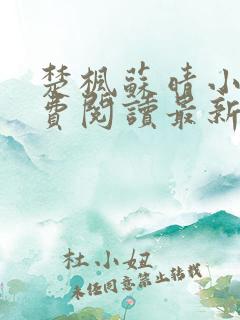 楚楓蘇晴小
費閱讀最新
杜小妞
未經同意禁止轉載